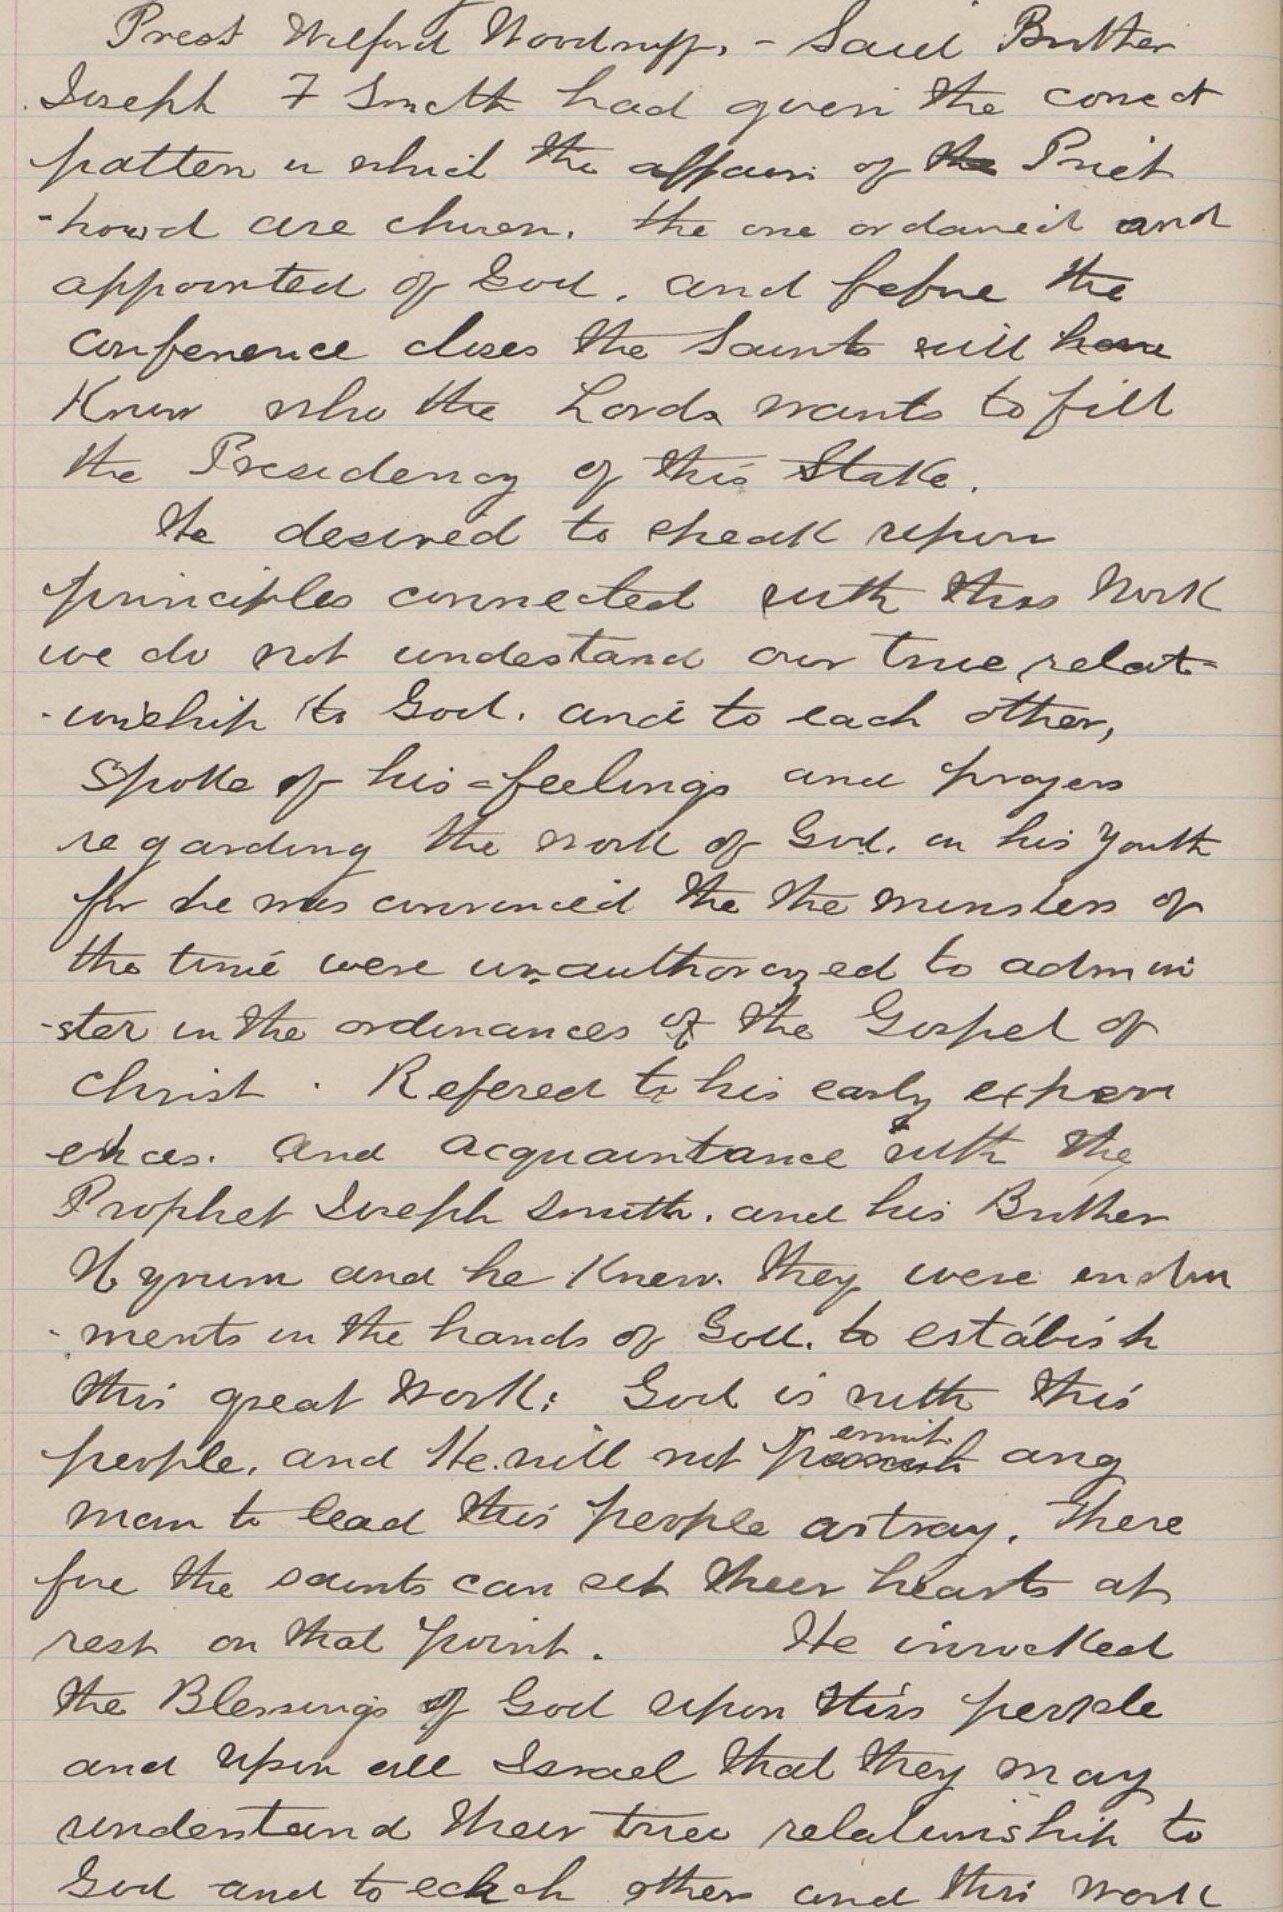 Prest Wilford Woodruff, - Said Brother
Joseph F Smith had given the correct
patten in which the affairs of the Priest
-hood are chosen. the one ordained and
appointed of God. and before the
conference closes the Saints will have
Know who the Lords wants to fill
the Presidency of this Stake.
He desired to speak upon
principles connected with this Work
we do not undestand our true relat-
-ionship to God. and to each other,
spoke of his feelings and prayers
regarding the work of God. in his youth
for he was convinced the the ministers of
the time were unauthorozed to admini
-ster in the ordinances of the Gospel of
Christ. Refered to his early experi
ences. and acquaintance with the
Prophet Joseph Smith. and his Brother
Hyrum and he Knew. they were instru
-ments in the hands of God. to estabish
this great Work: God is with this
people, and He will not permit any
man to lead this people astray. There
fore the saints can set their hearts at
rest on that point. He invocked
the Blessings of God upon this people
and upon all Israel that they may
understand their true relationship to
God and to each other and this work